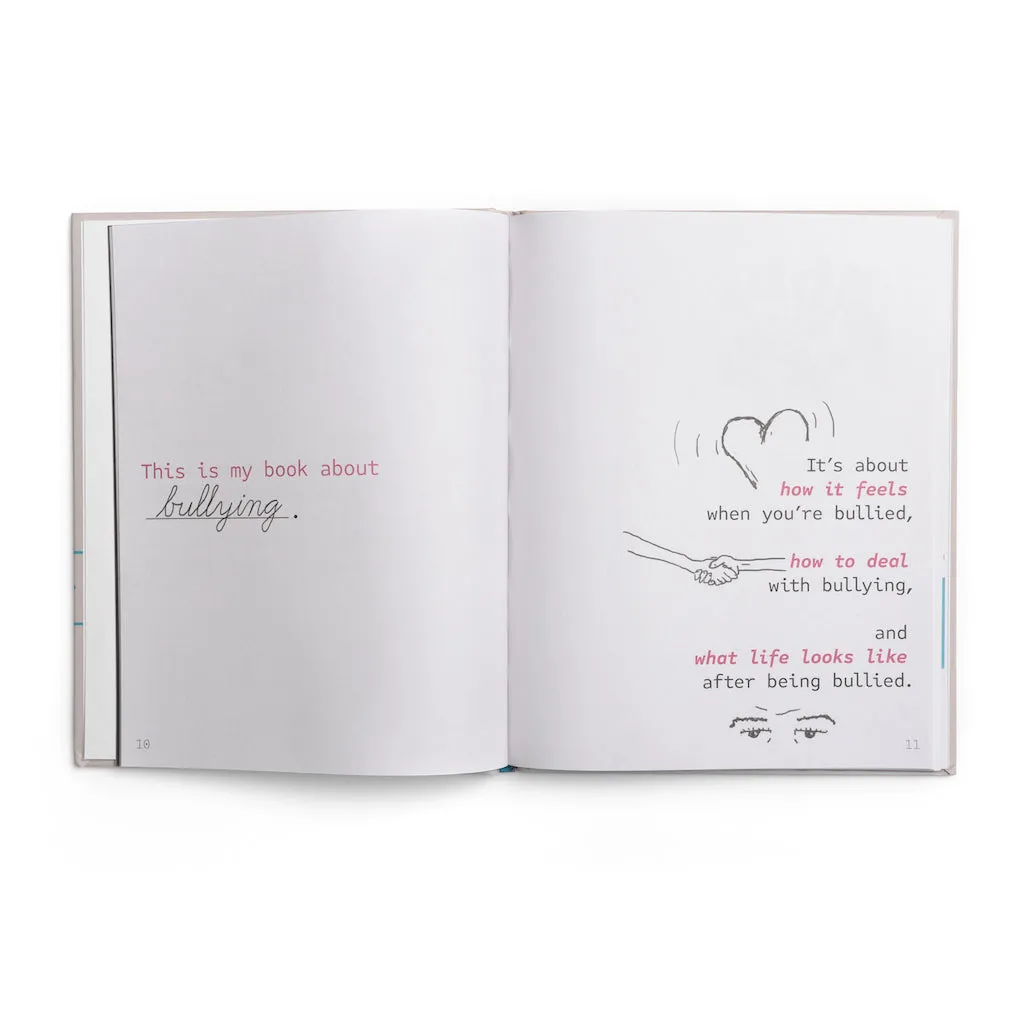 This is my book about
bullying.
10
It's about
how it feels
when you're bullied,
how to deal
with bullying,
and
what life looks like
after being bullied.
11